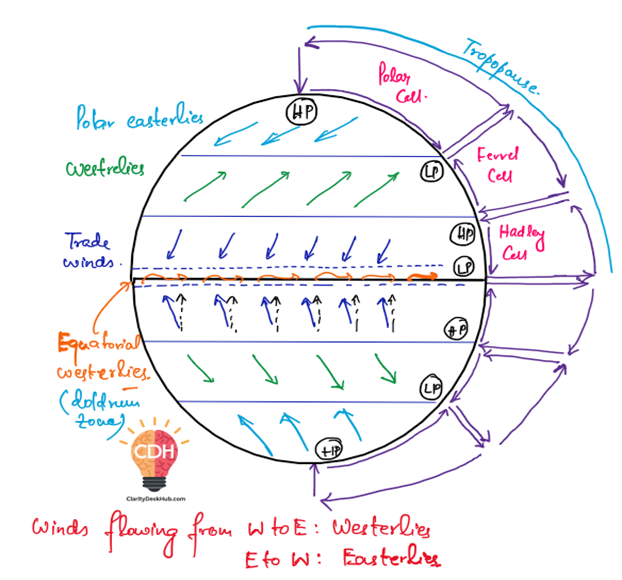 Tropopause.
Polar
Cell.
HP
Polar easterlies
westrelies
LP
Ferrel
Cell
HP
Hadley
Cell
Trade
winds.
LP
Equatorial
westerlies.
(doldrum
zone)
HP
LP
HP
CDH
ClarityDeskHub.com
Winds flowing from W to E: Westerlies
E to W: Easterlies